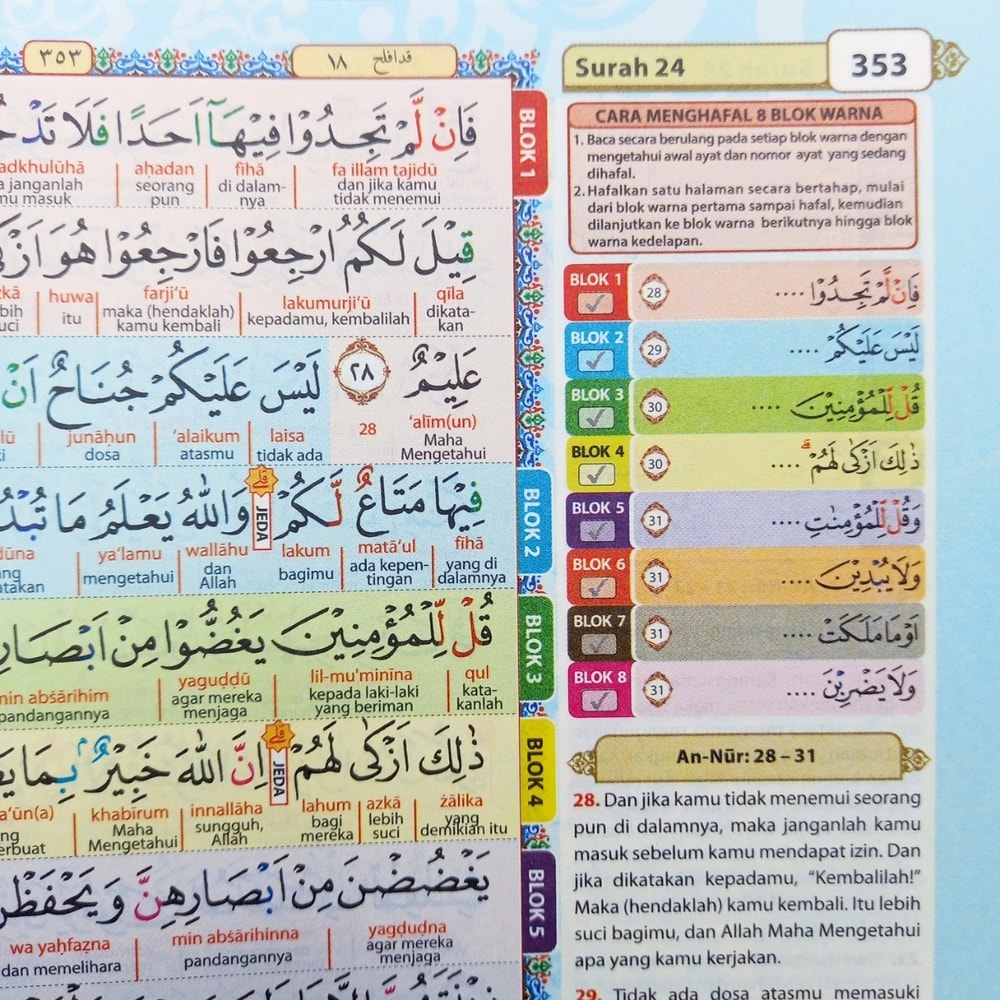 ٣٥٣
قدافلح ١٨
فَاِنْ لَّمْ تَجِدُوْا فِيْهَآ اَحَدًا فَلَا
adkhulūhā aḥadan fīhā fa illam tajidū
janganlah seorang di dalam- dan jika kamu
masuk pun nya tidak menemui
قِيْلَ لَكُمُ ارْجِعُوْا فَارْجِعُوْا هُوَ
huwa farji‘ū lakumurji‘ū qīla
itu maka (hendaklah) kepadamu, kembalilah dikata-
kamu kembali kan
عَلِيْمٌ ٢٨ لَيْسَ عَلَيْكُمْ جُنَاحٌ اَنْ
junāḥun ‘alaikum laisa 28 ‘alīm(un)
dosa atasmu tidak ada Maha
Mengetahui
فِيْهَا مَتَاعٌ لَّكُمْ ۗ وَاللّٰهُ يَعْلَمُ مَا
JEDA
ya‘lamu wallāhu lakum matā‘ul fīhā
mengetahui dan bagimu ada kepen- yang di
Allah tingan dalamnya
قُلْ لِّلْمُؤْمِنِيْنَ يَغُضُّوْا مِنْ
min abṣārihim yaguḍḍū lil-mu'minīna qul
pandangannya agar mereka kepada laki-laki kata-
menjaga yang beriman kanlah
ذٰلِكَ اَزْكٰى لَهُمْ ۗ اِنَّ اللّٰهَ خَبِيْرٌ
JEDA
khabīrum innallāha lahum azkā żālika
Maha sungguh, bagi lebih yang
Mengetahui Allah mereka suci demikian itu
يَغْضُضْنَ مِنْ اَبْصَارِهِنَّ وَيَحْفَظْنَ
wa yaḥfaẓna min abṣārihinna yagḍuḍna
dan memelihara pandangannya agar mereka
menjaga
BLOK 1
BLOK 2
BLOK 3
BLOK 4
BLOK 5
Surah 24
353
CARA MENGHAFAL 8 BLOK WARNA
1. Baca secara berulang pada setiap blok warna dengan
mengetahui awal ayat dan nomor ayat yang sedang
dihafal.
2. Hafalkan satu halaman secara bertahap, mulai
dari blok warna pertama sampai hafal, kemudian
dilanjutkan ke blok warna berikutnya hingga blok
warna kedelapan.
BLOK 1 28 فَاِنْ لَّمْ تَجِدُوْا ....
BLOK 2 29 لَيْسَ عَلَيْكُمْ ....
BLOK 3 30 قُلْ لِّلْمُؤْمِنِيْنَ ....
BLOK 4 30 ذٰلِكَ اَزْكٰى لَهُمْ ۗ ....
BLOK 5 31 وَقُلْ لِّلْمُؤْمِنٰتِ ....
BLOK 6 31 وَلَا يُبْدِيْنَ ....
BLOK 7 31 اَوْ مَا مَلَكَتْ ....
BLOK 8 31 وَلَا يَضْرِبْنَ ....
An-Nūr: 28 – 31
28. Dan jika kamu tidak menemui seorang
pun di dalamnya, maka janganlah kamu
masuk sebelum kamu mendapat izin. Dan
jika dikatakan kepadamu, “Kembalilah!”
Maka (hendaklah) kamu kembali. Itu lebih
suci bagimu, dan Allah Maha Mengetahui
apa yang kamu kerjakan.
29. Tidak ada dosa atasmu memasuki